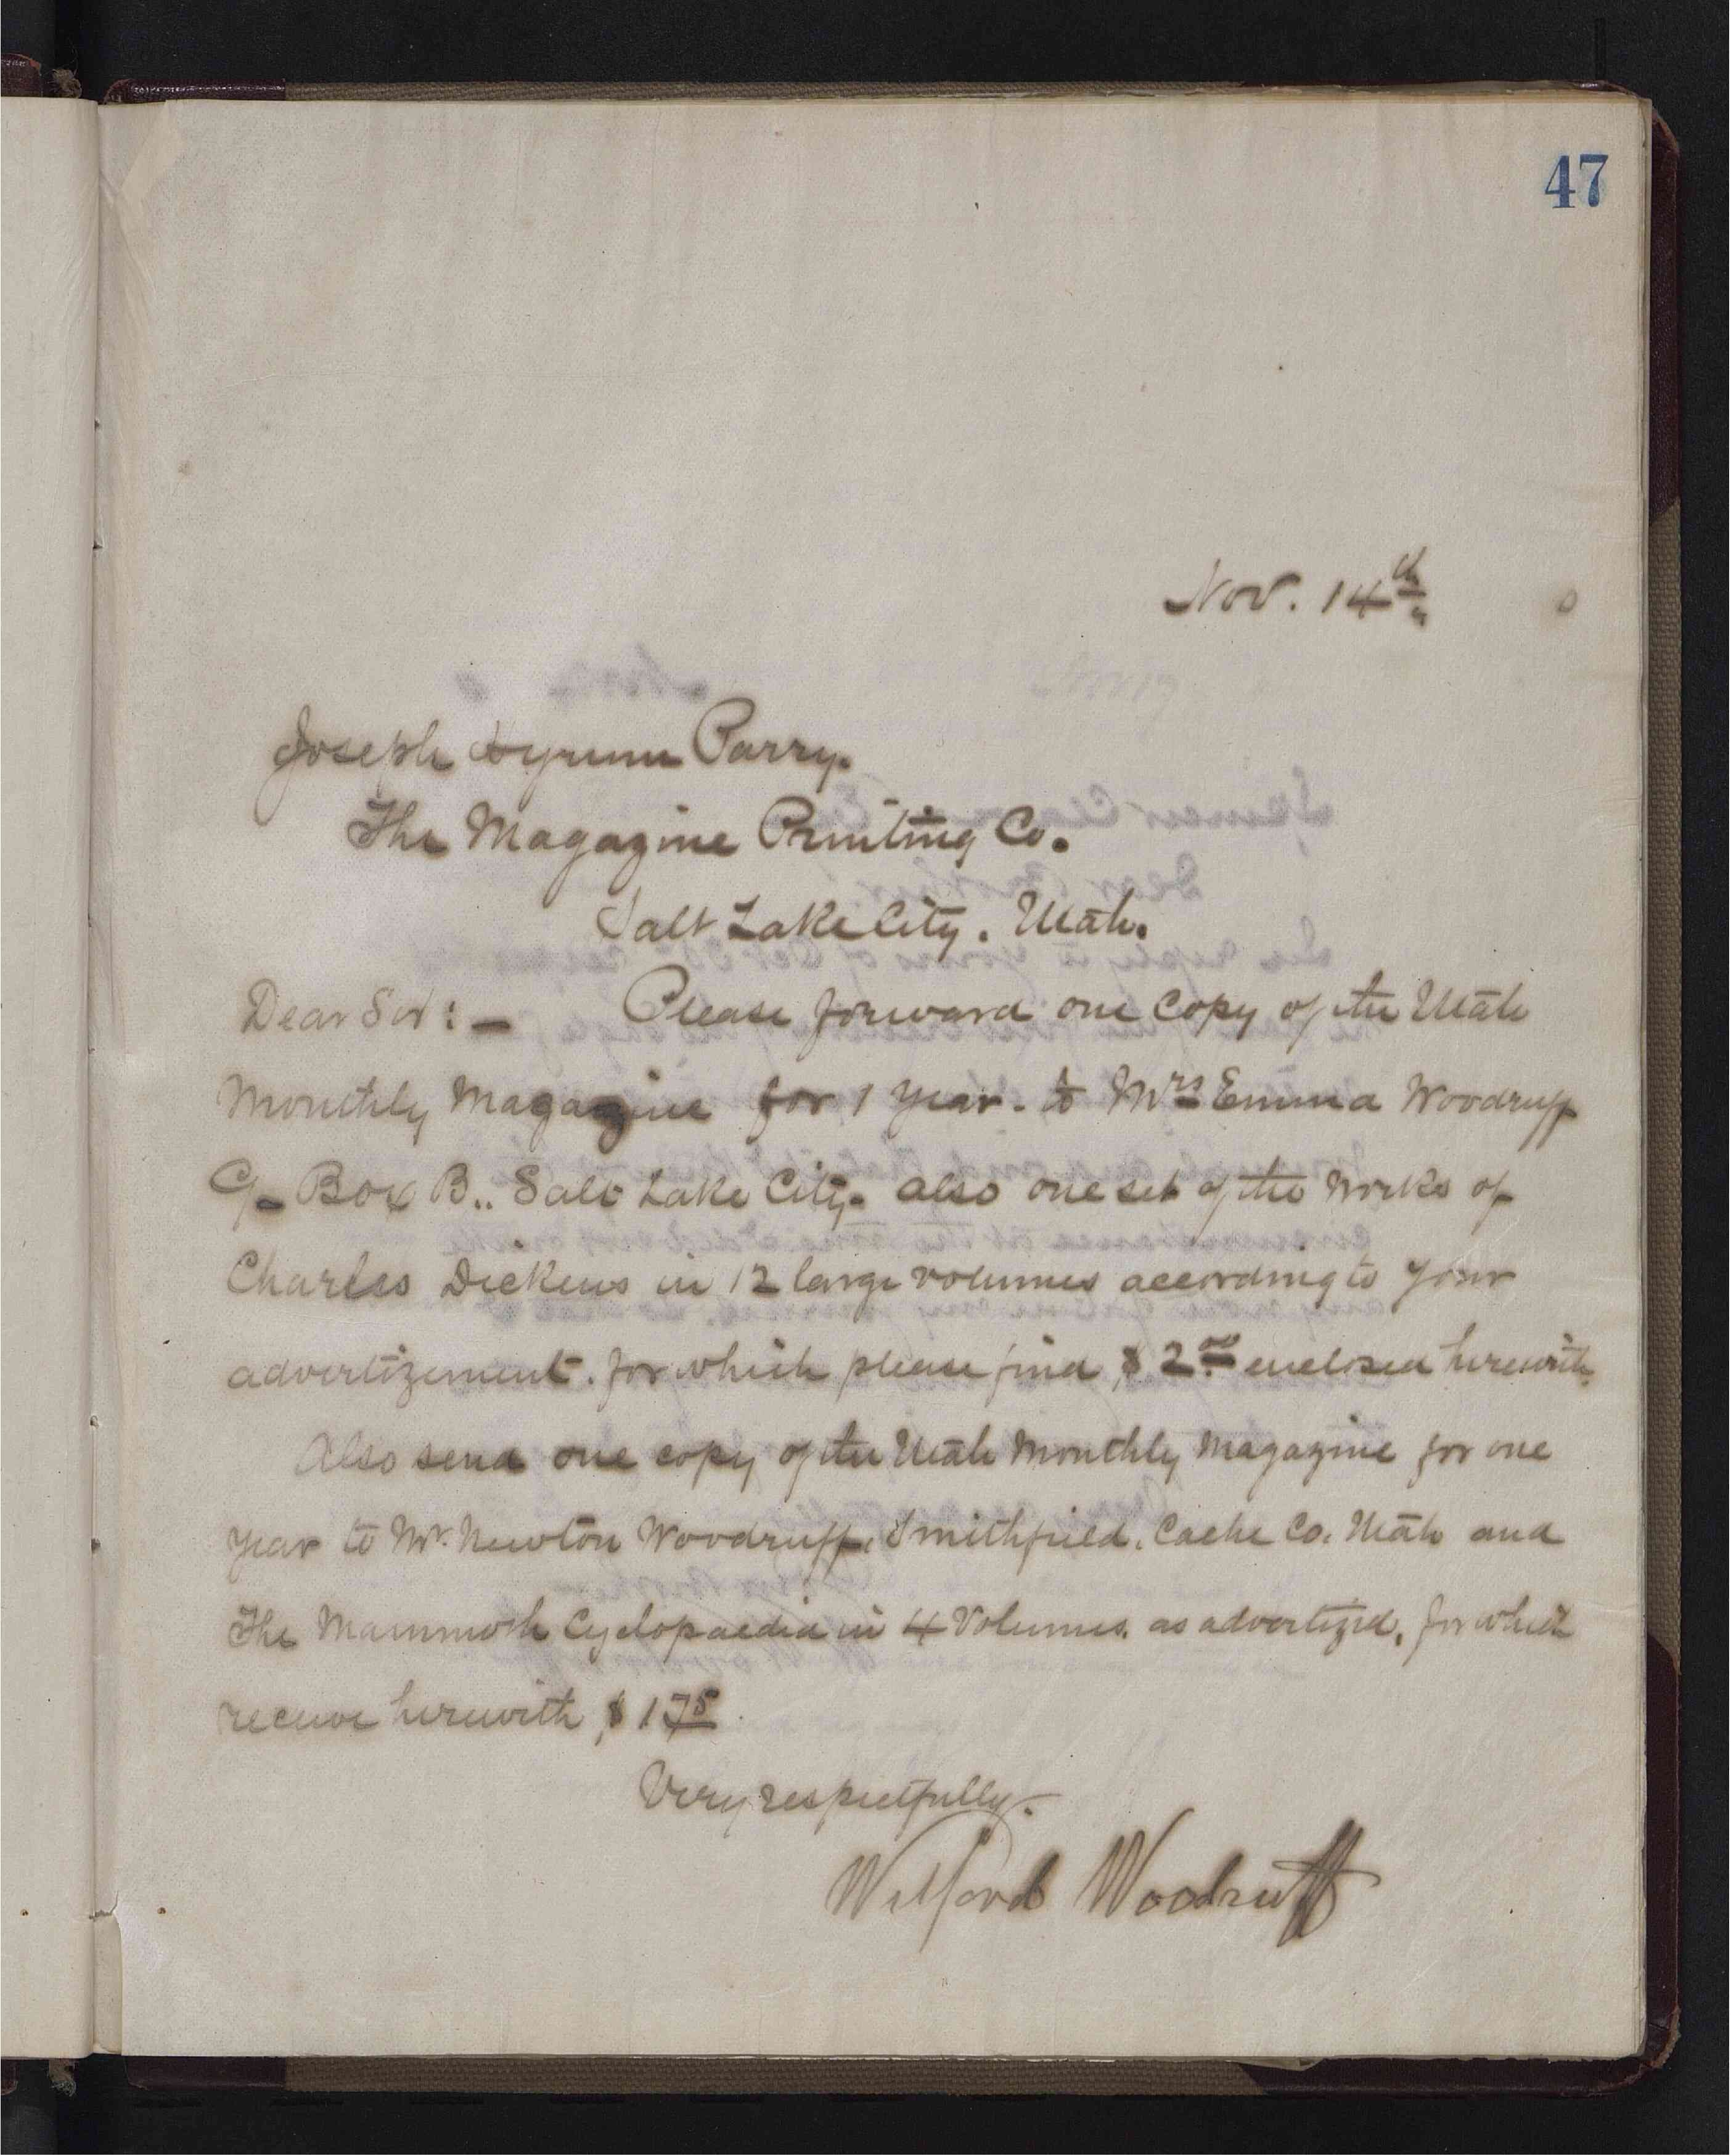 47
Nov. 14th
Joseph Hyrum Parry.
The Magazine Printing Co.
Salt Lake City. Utah.
Dear Sir:— Please forward one copy of the Utah
Monthly Magazine for 1 year. to Mrs Emma Woodruff
C/o Box B.. Salt Lake City. also one set of the works of
Charles Dickens in 12 large volumes according to your
advertizement. for which please find $2.00 enclosed herewith.
Also send one copy of the Utah Monthly Magazine for one
year to Mr. Newton Woodruff, Smithfield. Cache Co. Utah and
The Mammoth Cyclopaedia in 4 Volumes. as advertized, for which
receive herewith $1 75.
Very respectfully.
Wilford Woodruff